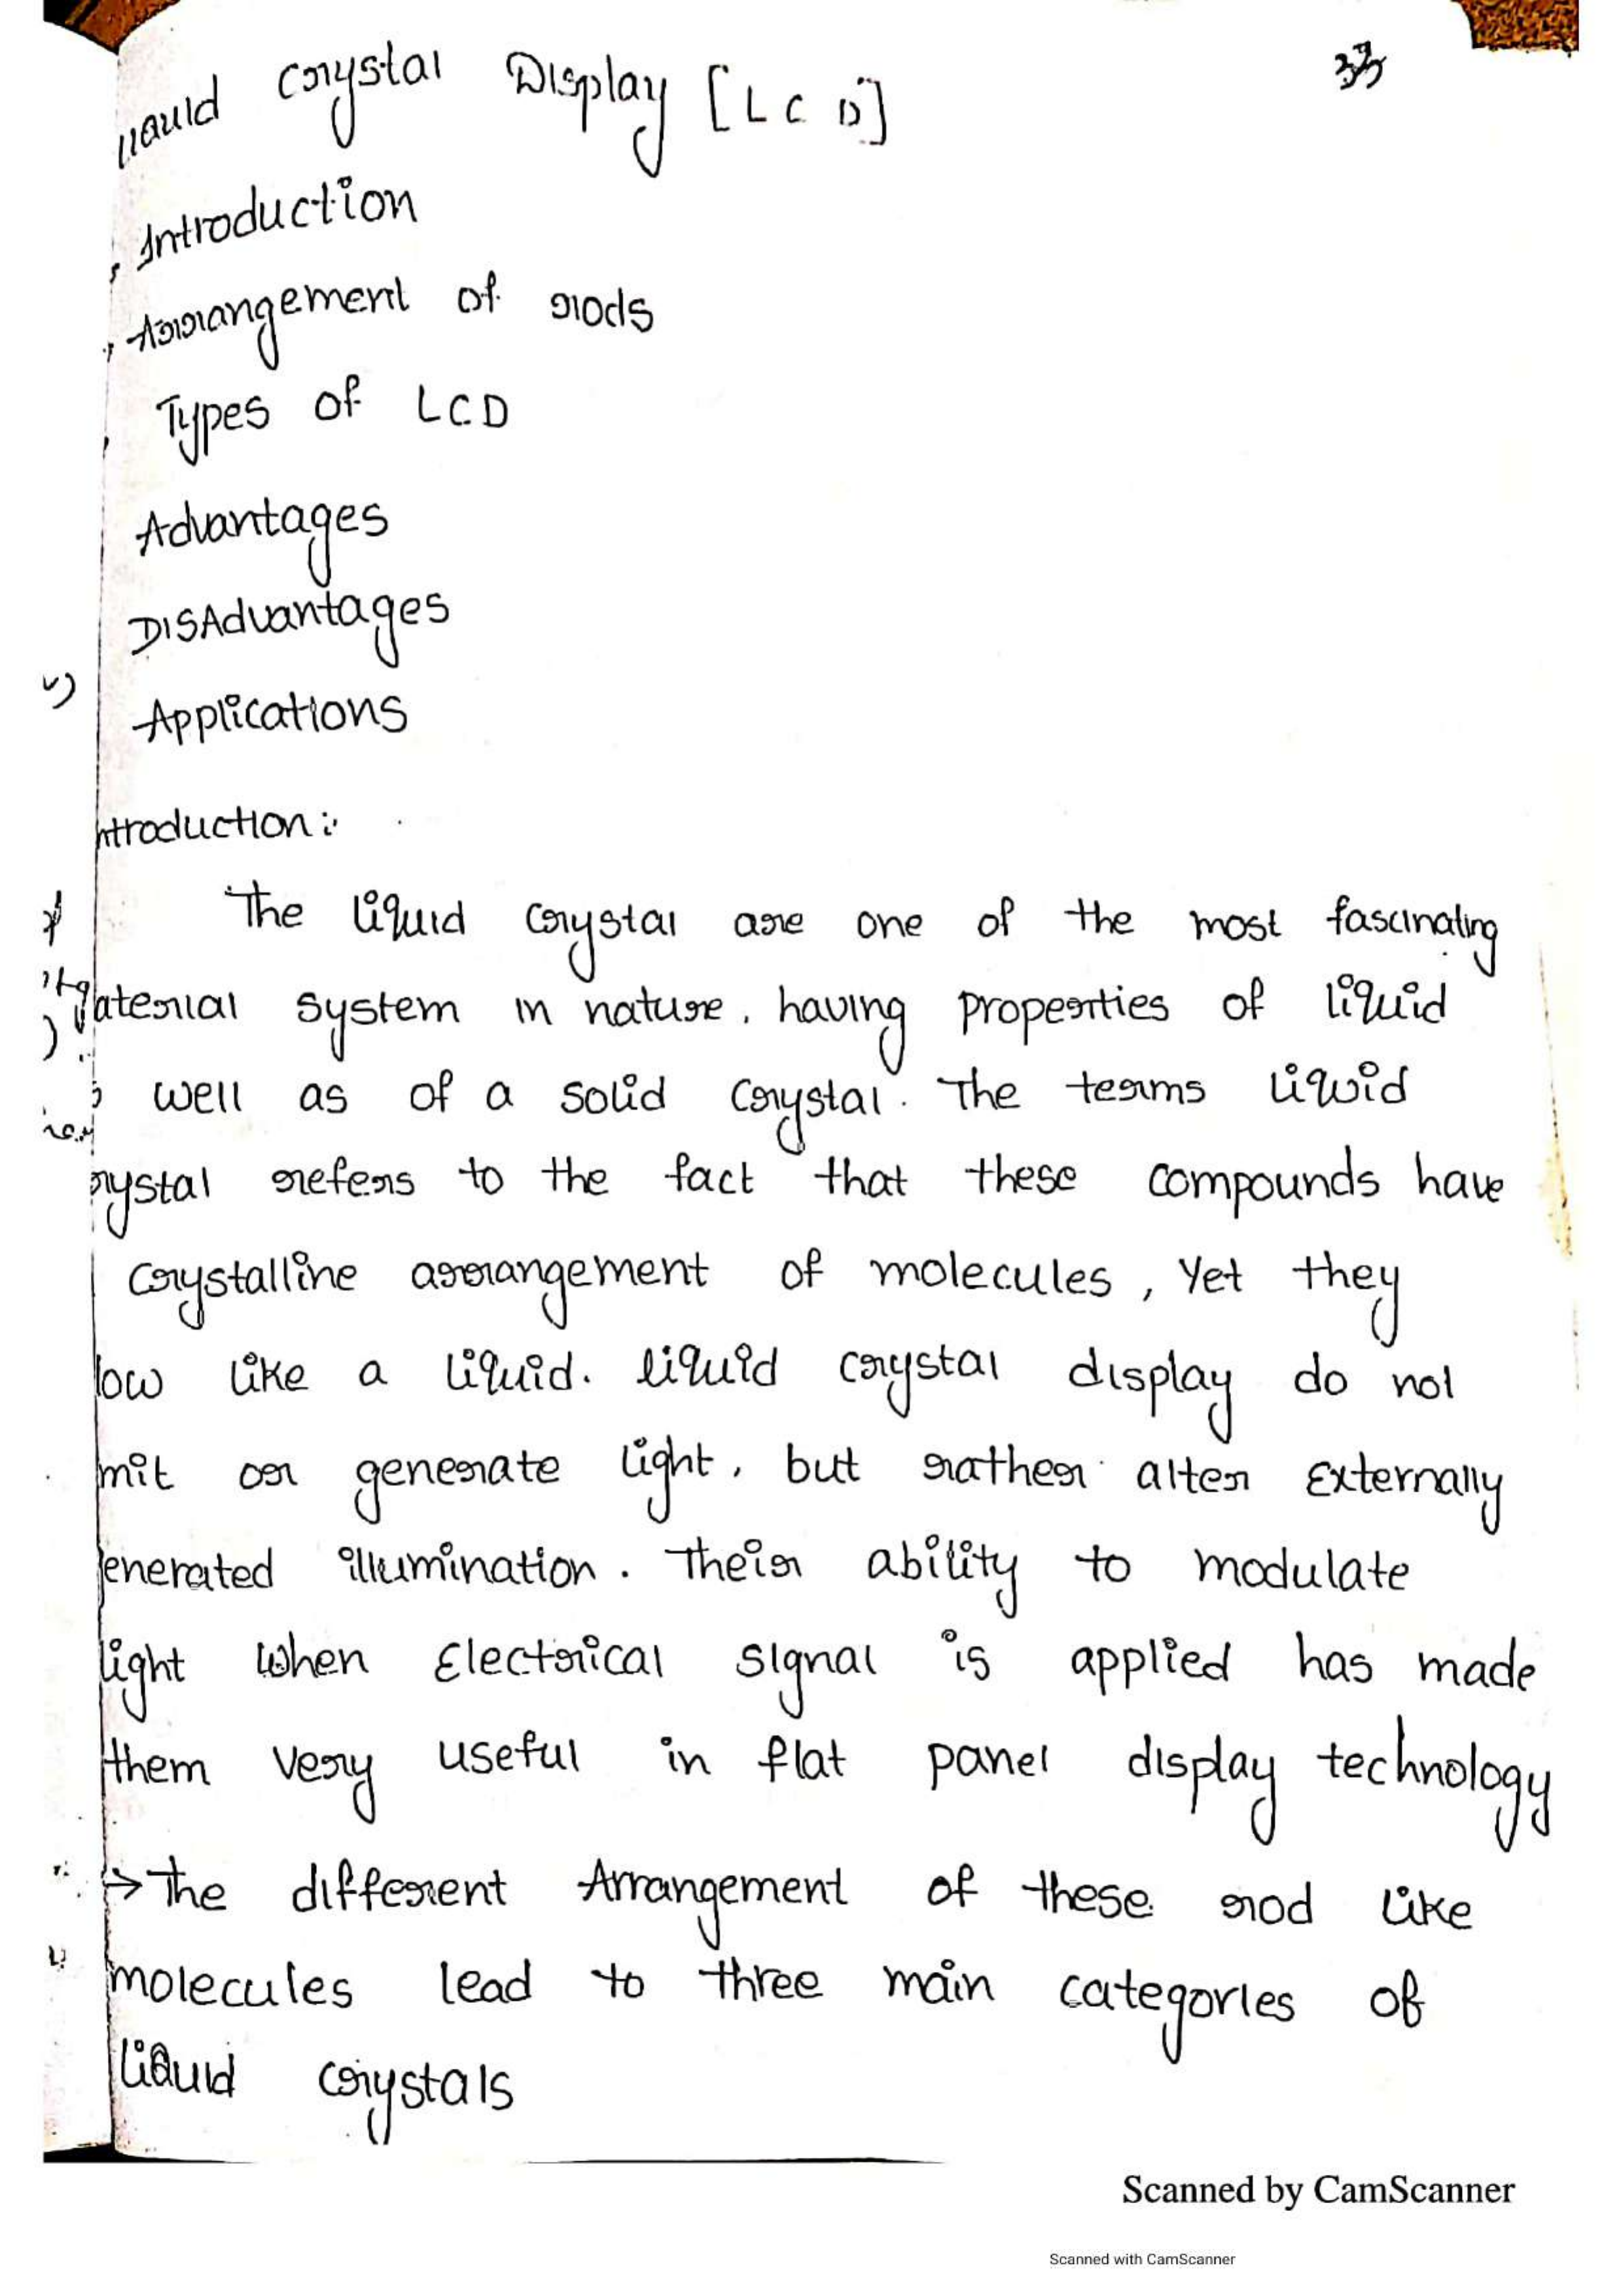 33
liquid crystal Display [LCD]
Introduction
Arrangement of rods
Types of LCD
Advantages
DISAdvantages
Applications
ntroduction:
The liquid crystal are one of the most fascinating
material system in nature, having properties of liquid
s well as of a solid crystal. The terms liquid
rystal refers to the fact that these compounds have
crystalline arrangement of molecules, Yet they
low like a liquid. liquid crystal display do not
mit or generate light, but rather alter Externally
enerated illumination. Their ability to modulate
light when Electrical signal is applied has made
them very useful in flat panel display technology
→ The different Arrangement of these rod like
molecules lead to three main categories of
liquid crystals
Scanned by CamScanner
Scanned with CamScanner